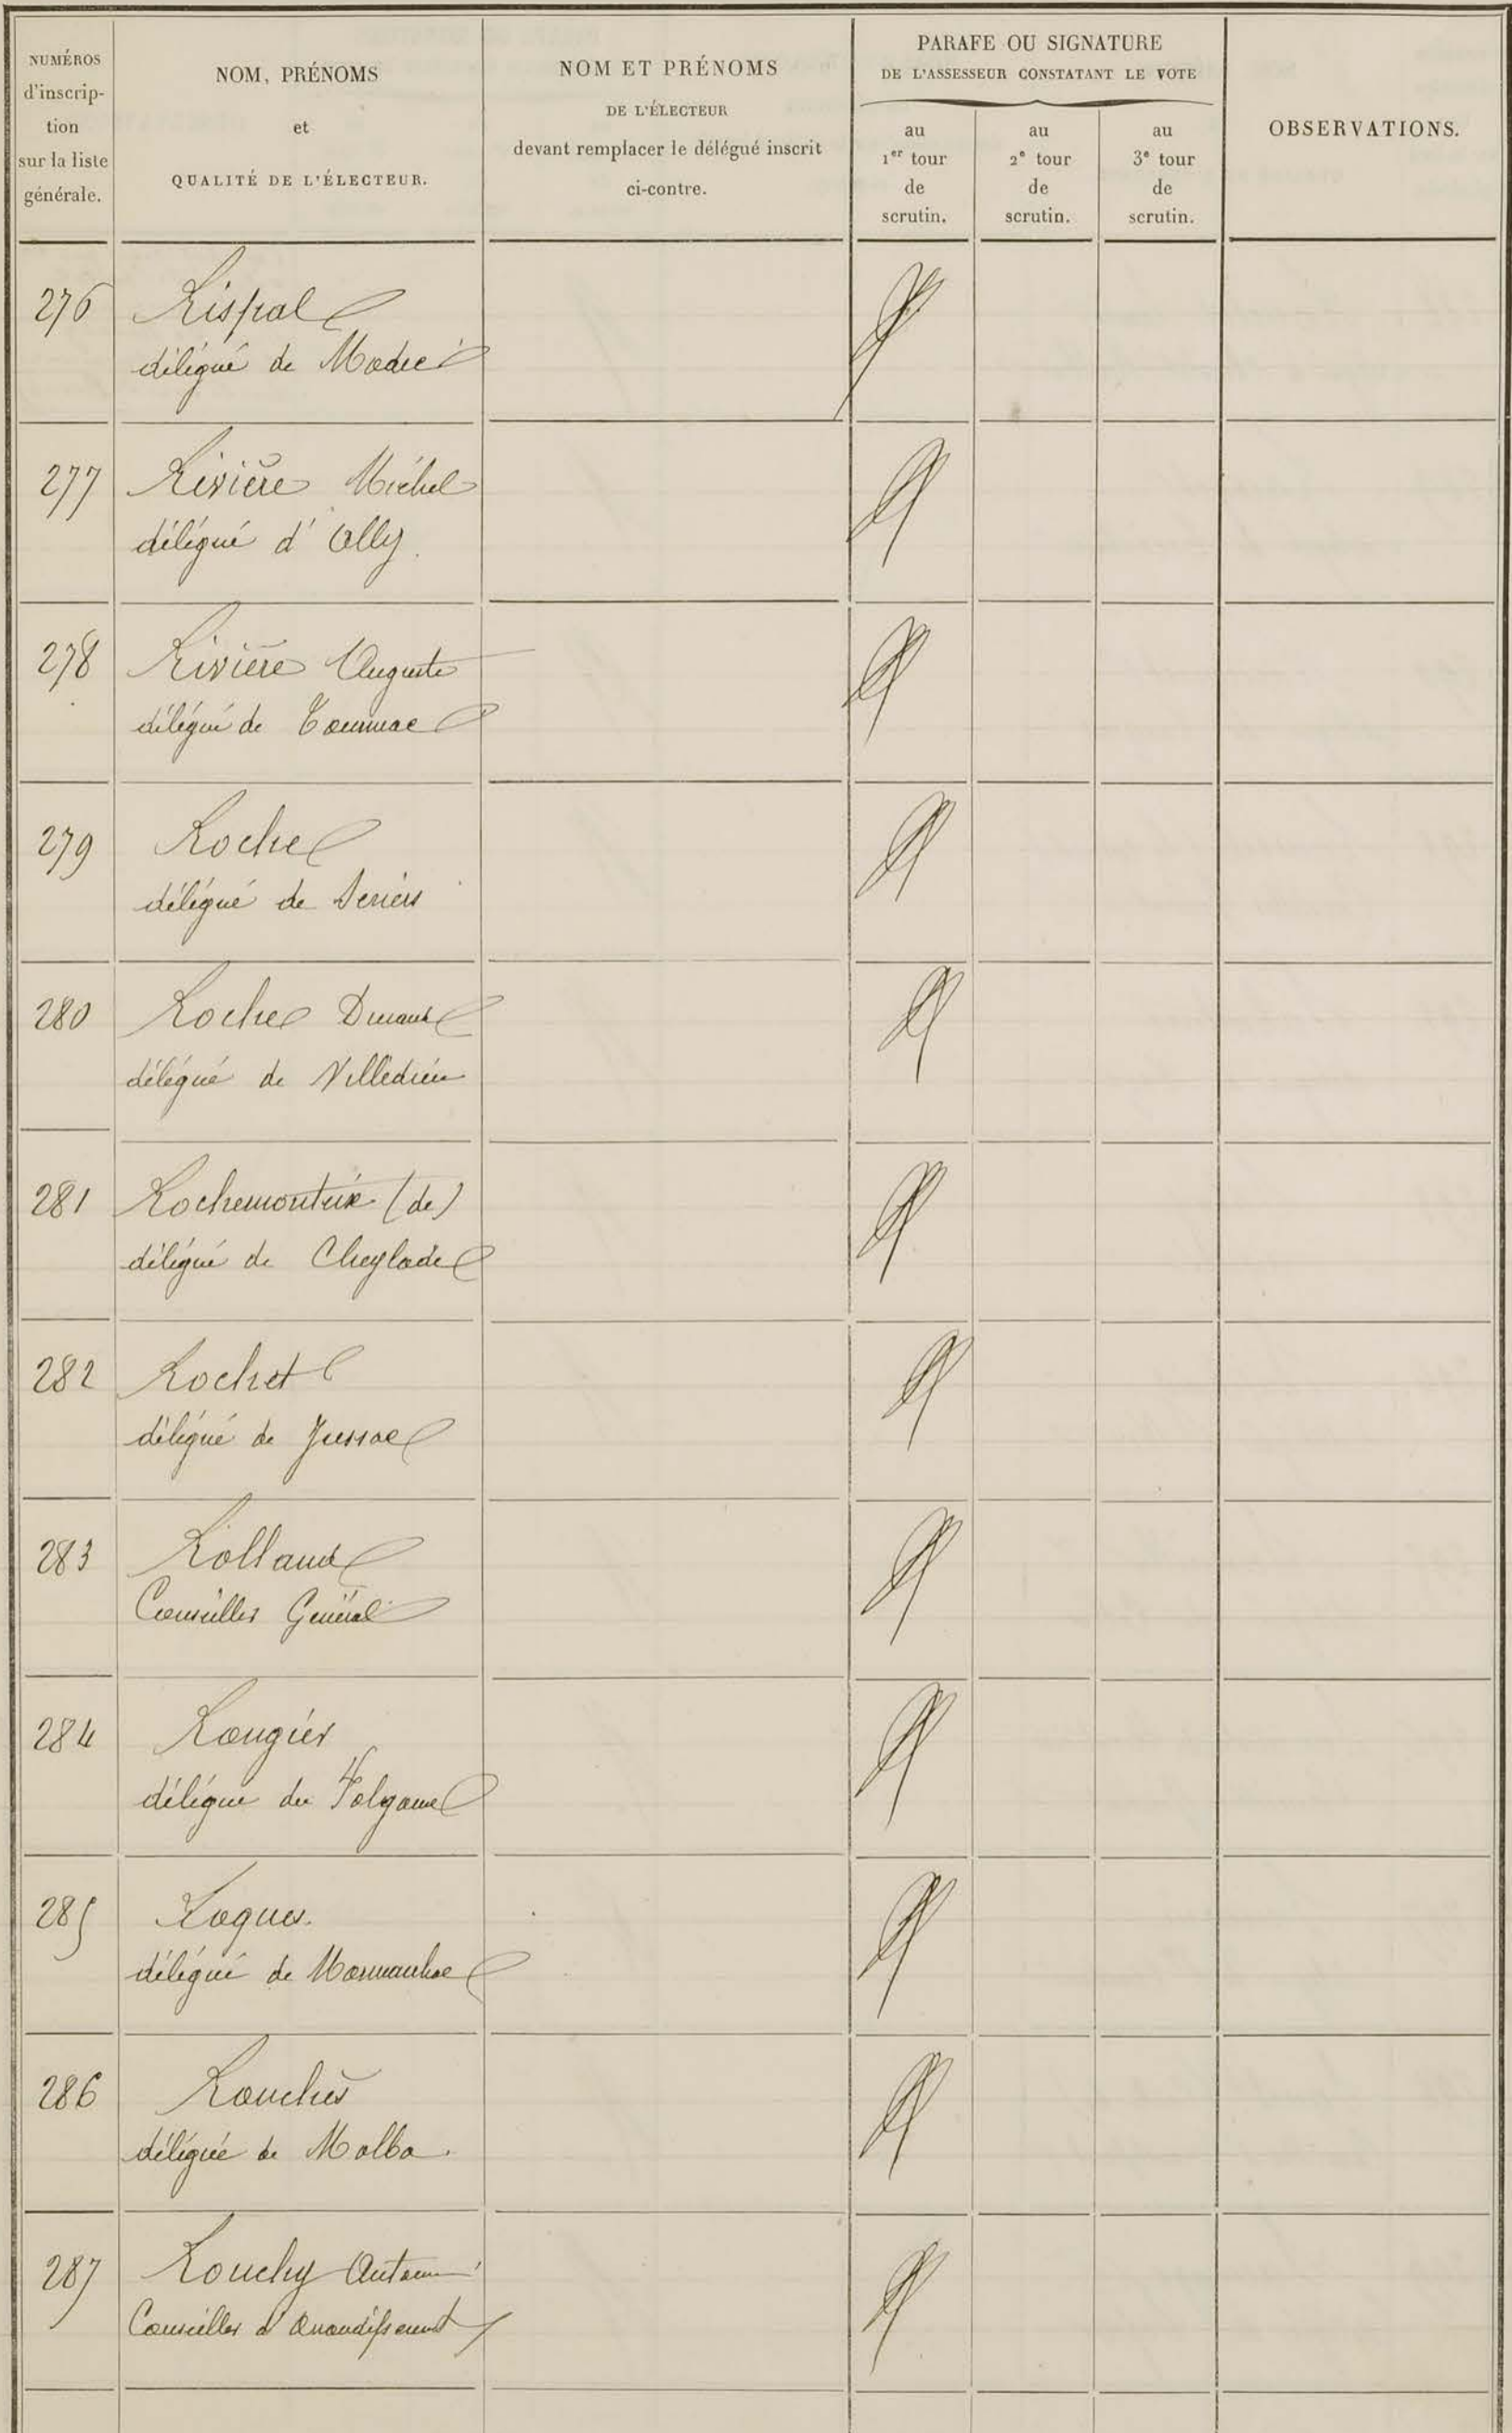 NUMÉROS
d'inscrip-
tion
sur la liste
générale.
NOM, PRÉNOMS
et
QUALITÉ DE L'ÉLECTEUR.
NOM ET PRÉNOMS
DE L'ÉLECTEUR
devant remplacer le délégué inscrit
ci-contre.
PARAFE OU SIGNATURE
DE L'ASSESSEUR CONSTATANT LE VOTE
au
1er tour
de
scrutin.
au
2e tour
de
scrutin.
au
3e tour
de
scrutin.
OBSERVATIONS.
276 Rispal
délégué de Madic
277 Rivière Michel
délégué d'Ally.
278 Rivière Auguste
délégué de Tourniac
279 Roche
délégué de Seriers
280 Roche Durand
délégué de Villedieu
281 Rochemonteix (de)
délégué de Cheylade
282 Rochet
délégué de Jussac
283 Rolland
Conseiller Général
284 Rougier
délégué du Falgoux
285 Roques.
délégué de Marmanhac
286 Rouchès
délégué de Malbo.
287 Rouchy Antoine
Conseiller d'arrondissement